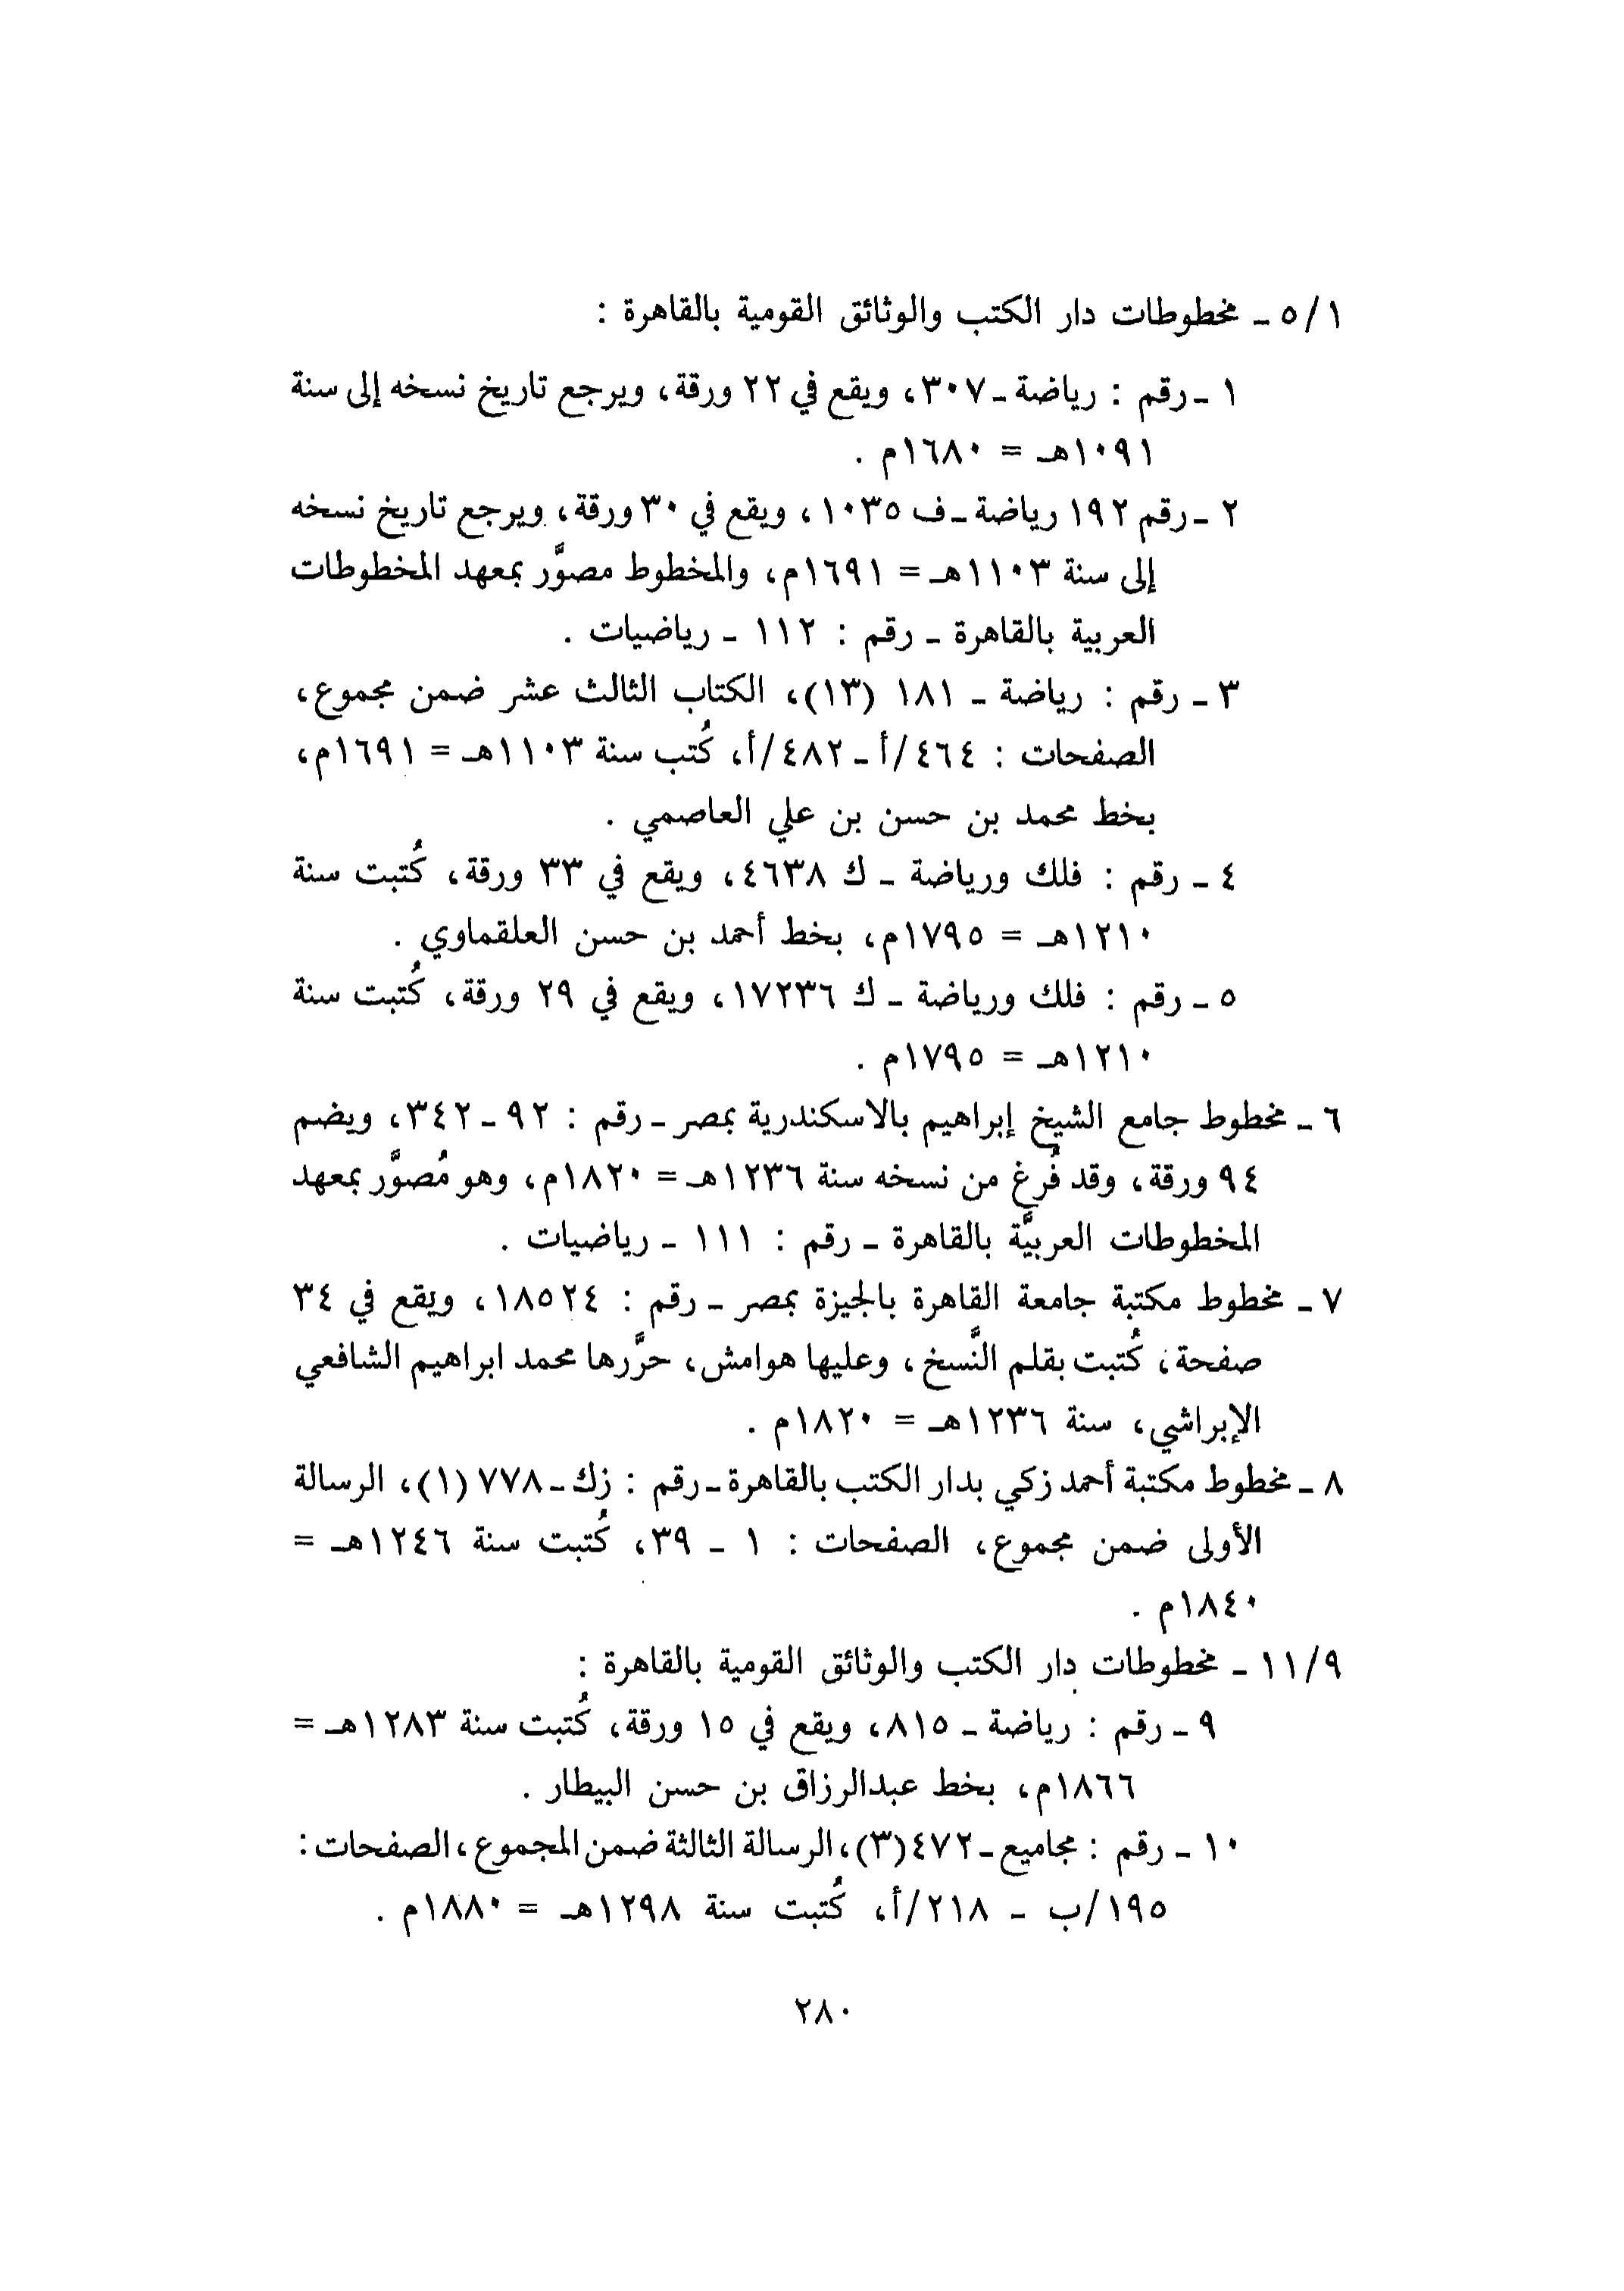 ٥/١ - مخطوطات دار الكتب والوثائق القومية بالقاهرة :
١ - رقم : رياضة - ٣٠٧، ويقع في ٢٢ ورقة، ويرجع تاريخ نسخه إلى سنة
١٠٩١هـ = ١٦٨٠م .
٢ - رقم ١٩٢ رياضة - ف ١٠٣٥، ويقع في ٣٠ ورقة، ويرجع تاريخ نسخه
إلى سنة ١١٠٣هـ = ١٦٩١م، والمخطوط مصوَّر بمعهد المخطوطات
العربية بالقاهرة - رقم : ١١٢ - رياضيات .
٣ - رقم : رياضة - ١٨١ (١٣)، الكتاب الثالث عشر ضمن مجموع،
الصفحات : ٤٦٤/أ - ٤٨٢/أ، كُتب سنة ١١٠٣هـ = ١٦٩١م،
بخط محمد بن حسن بن علي العاصمي .
٤ - رقم : فلك ورياضة - ك ٤٦٣٨، ويقع في ٣٣ ورقة، كُتبت سنة
١٢١٠هـ = ١٧٩٥م، بخط أحمد بن حسن العلقماوي .
٥ - رقم : فلك ورياضة - ك ١٧٢٣٦، ويقع في ٢٩ ورقة، كُتبت سنة
١٢١٠هـ = ١٧٩٥م .
٦ - مخطوط جامع الشيخ إبراهيم بالاسكندرية بمصر - رقم : ٩٢ - ٣٤٢، ويضم
٩٤ ورقة، وقد فُرغ من نسخه سنة ١٢٣٦هـ = ١٨٢٠م، وهو مُصوَّر بمعهد
المخطوطات العربيَّة بالقاهرة - رقم : ١١١ - رياضيات .
٧ - مخطوط مكتبة جامعة القاهرة بالجيزة بمصر - رقم : ١٨٥٢٤، ويقع في ٣٤
صفحة، كُتبت بقلم النَّسخ، وعليها هوامش، حرَّرها محمد ابراهيم الشافعي
الإبراشي، سنة ١٢٣٦هـ = ١٨٢٠م .
٨ - مخطوط مكتبة أحمد زكي بدار الكتب بالقاهرة - رقم : زك - ٧٧٨ (١)، الرسالة
الأولى ضمن مجموع، الصفحات : ١ - ٣٩، كُتبت سنة ١٢٤٦هـ =
١٨٤٠م .
١١/٩ - مخطوطات دار الكتب والوثائق القومية بالقاهرة :
٩ - رقم : رياضة - ٨١٥، ويقع في ١٥ ورقة، كُتبت سنة ١٢٨٣هـ =
١٨٦٦م، بخط عبدالرزاق بن حسن البيطار .
١٠ - رقم : مجاميع - ٤٧٢(٣)، الرسالة الثالثة ضمن المجموع، الصفحات :
١٩٥/ب - ٢١٨/أ، كُتبت سنة ١٢٩٨هـ = ١٨٨٠م .
٢٨٠